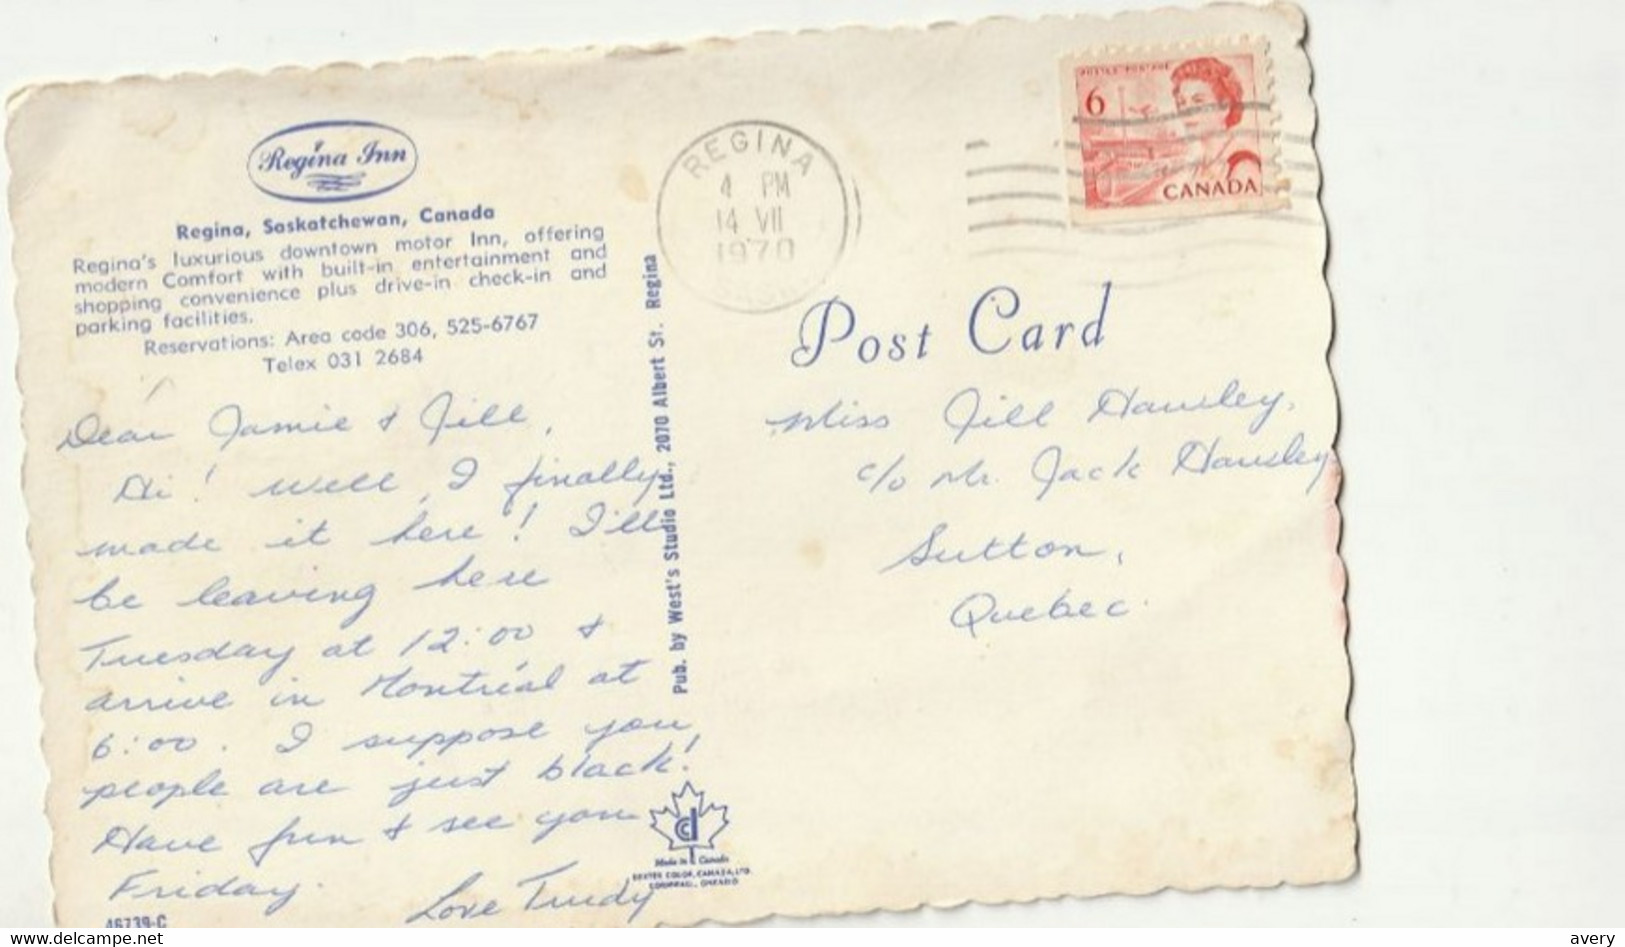 Regina Inn
Regina, Saskatchewan, Canada
Regina's luxurious downtown motor Inn, offering
modern Comfort with built-in entertainment and
shopping convenience plus drive-in check-in and
parking facilities.
Reservations: Area code 306, 525-6767
Telex 031 2684
Dear Jamie & Jill,
Hi! Well, I finally
made it here! I'll
be leaving here
Tuesday at 12:00 &
arrive in Montréal at
6:00. I suppose you
people are just black!
Have fun & see you
Friday.
Love Trudy
46739-C
Pub. by West's Studio Ltd., 2070 Albert St. Regina
Made in Canada
DEXTER COLOR, CANADA, LTD.
CORNWALL, ONTARIO
REGINA
4 PM
14 VII
1970
POSTES POSTAGE
6
CANADA
Post Card
Miss Jill Hawley,
c/o Mr. Jack Hawley
Sutton,
Quebec.
avery
www.delcampe.net